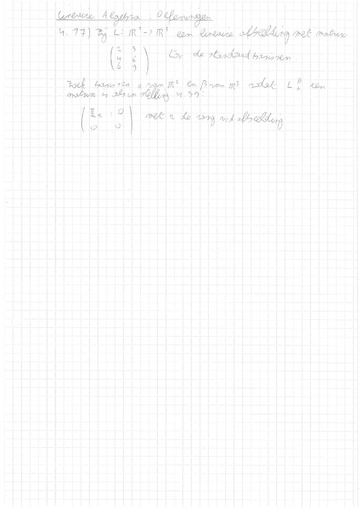 Lineaire Algebra: Oefeningen
4.17) Zij L: ℝ² → ℝ³ een lineaire afbeelding met matrix
t.o.v. de standaard basissen
Zoek basissen α van ℝ² en β van ℝ³ zodat L een
matrix is als in stelling 4.39.
( 𝕀r 0
0 0 ) met r de rang v/d afbeelding